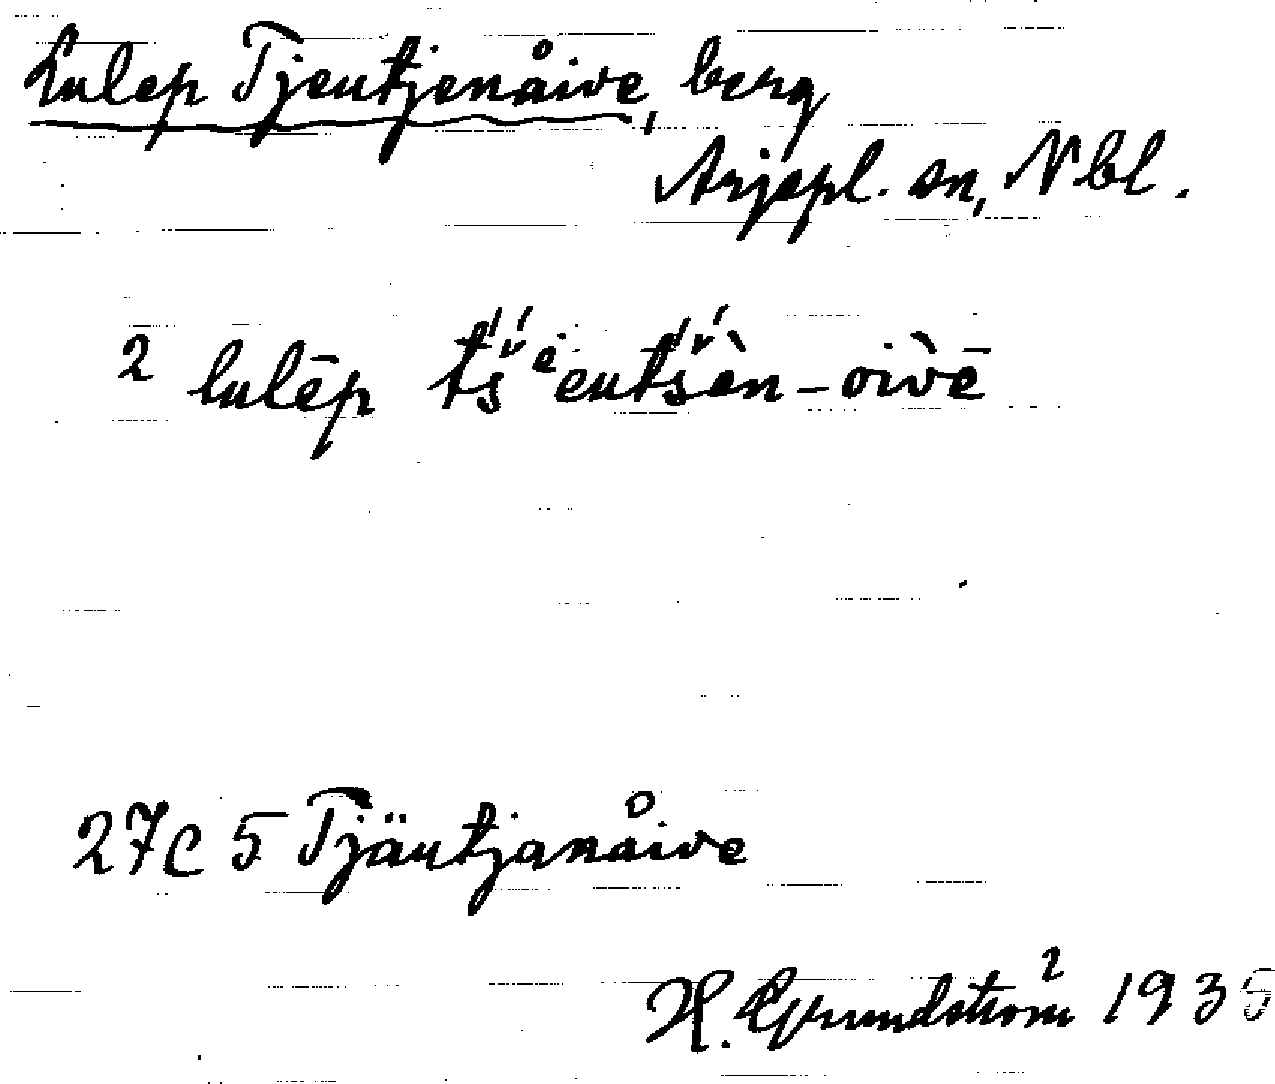 Lulep Tjeutjenåive, berg
Arjepl. sn, Nbl.
2 lulēp t́ś́ᵉeut́ś́èn-oiv̀ē
27C 5 Tjäutjanåive
H. Grundström² 1935